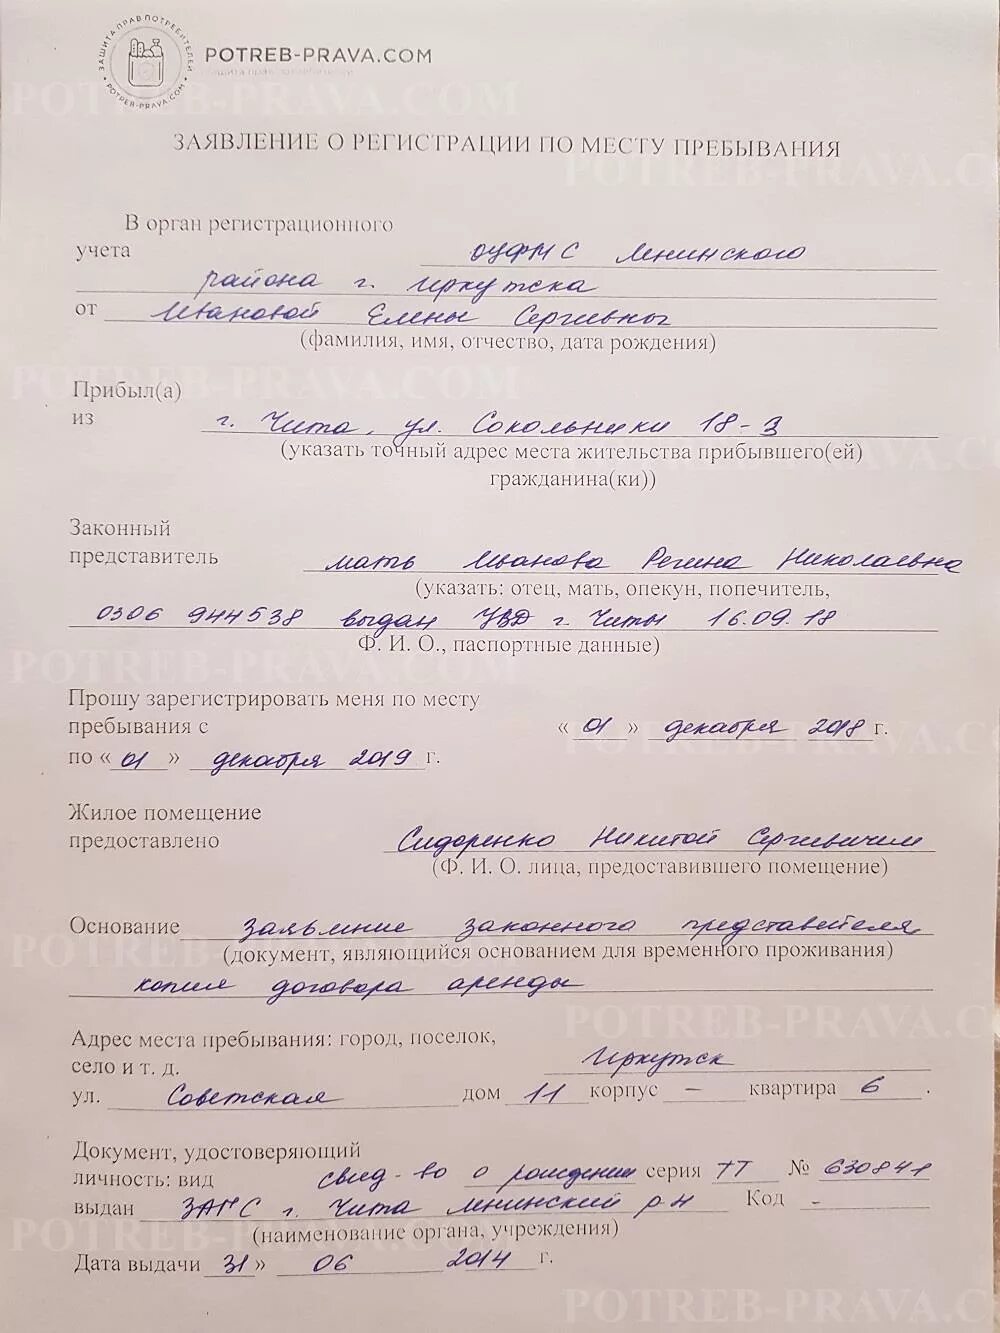 ЗАЩИТА ПРАВ ПОТРЕБИТЕЛЕЙ
POTREB-PRAVA.COM
POTREB-PRAVA.COM
защита прав потребителей
POTREB-PRAVA.COM
ЗАЯВЛЕНИЕ О РЕГИСТРАЦИИ ПО МЕСТУ ПРЕБЫВАНИЯ
POTREB-PRAVA.CO
В орган регистрационного
учета ОУФМС Ленинского
района г. Иркутска
от Ивановой Елены Сергиевны
(фамилия, имя, отчество, дата рождения)
POTREB-PRAVA.COM
Прибыл(а)
из г. Чита, ул. Сокольники 18-3
(указать точный адрес места жительства прибывшего(ей)
POTREB-PRAVA.CO
гражданина(ки))
Законный
представитель мать Иванова Регина Николаевна
(указать: отец, мать, опекун, попечитель,
0306 944538 выдан УВД г. Читы 16.09.18
Ф. И. О., паспортные данные)
POTREB-PRAVA.COM
Прошу зарегистрировать меня по месту
пребывания с « 01 » декабря 2018 г.
POTREB-PRAVA.CO
по « 01 » декабря 2019 г.
Жилое помещение
предоставлено Сидоренко Никитой Сергиевичем
(Ф. И. О. лица, предоставившего помещение)
Основание заявление законного представителя
(документ, являющийся основанием для временного проживания)
POTREB-PRAVA.COM
копия договора аренды
POTREB-PRAVA.CO
Адрес места пребывания: город, поселок,
село и т. д. Иркутск
ул. Советская дом 11 корпус – квартира 6 .
Документ, удостоверяющий
личность: вид свид-во о рождении серия ТТ № 630841
выдан ЗАГС г. Чита Ленинский р-н Код -
(наименование органа, учреждения)
POTREB-PRAVA.COM
Дата выдачи 31 » 06 2014 г.
POTREB-PRAVA.CO